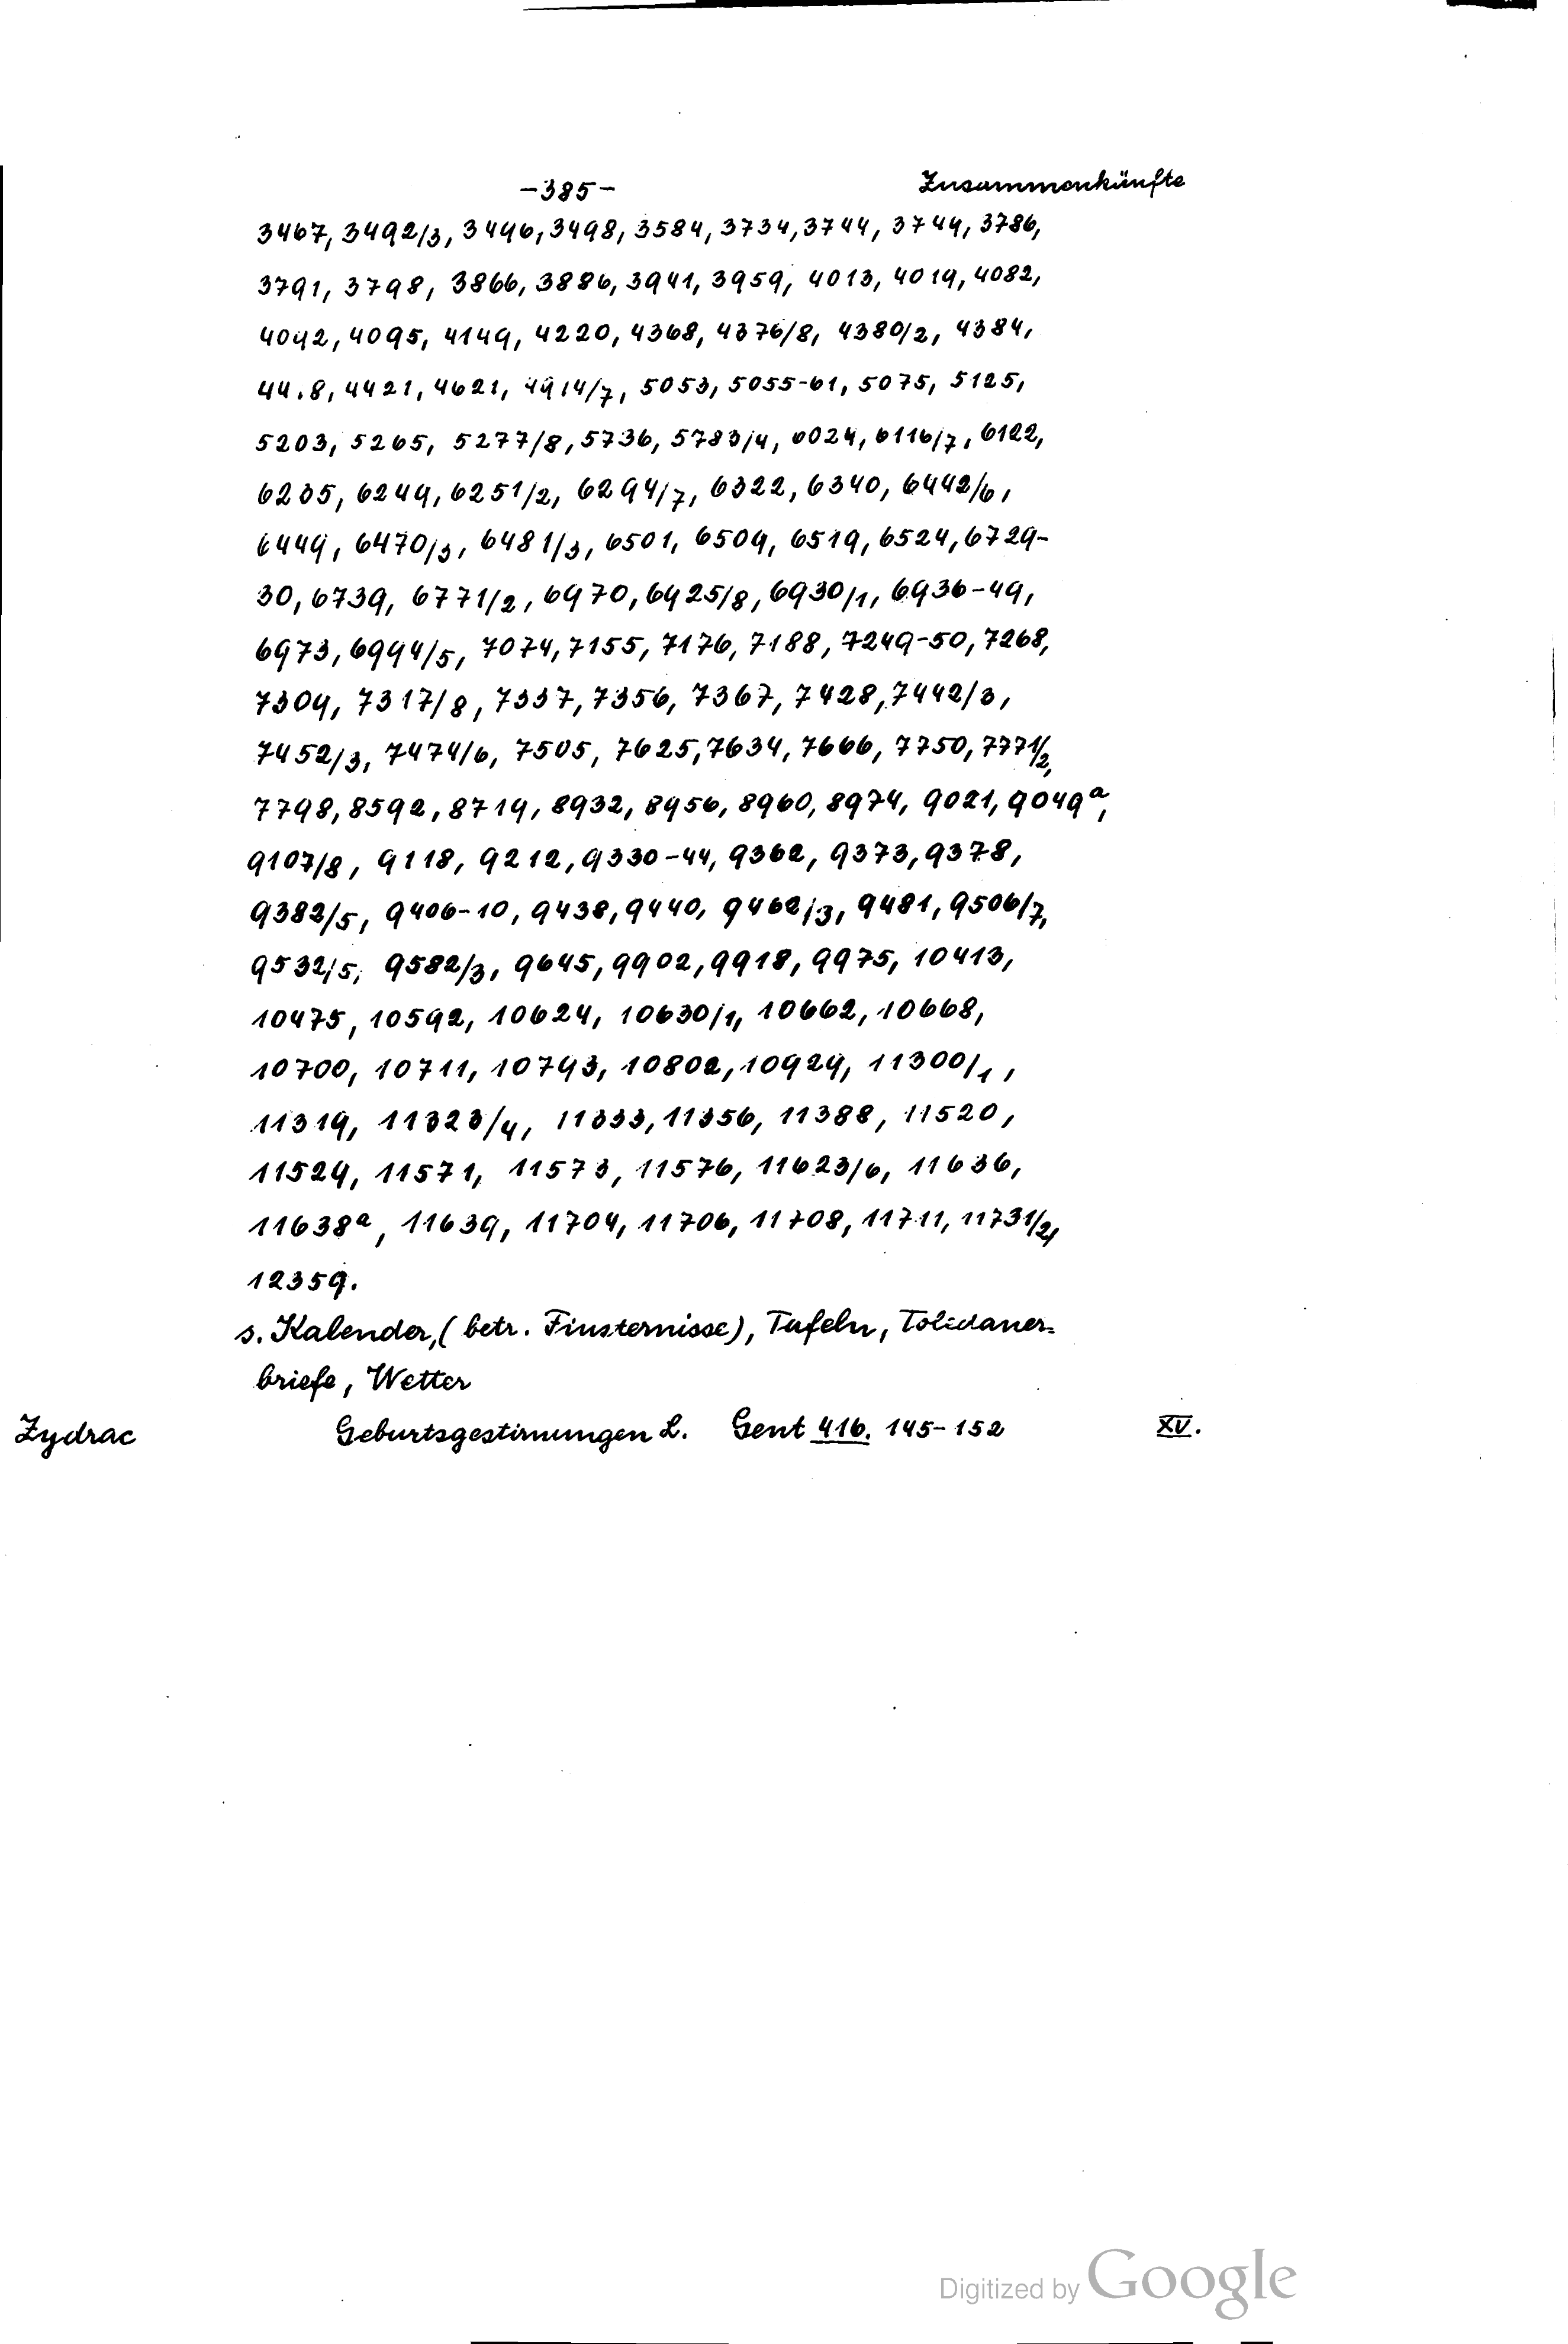 -385- Zusammenkünfte
3467, 3492/3, 3496, 3498, 3584, 3734, 3744, 3749, 3786,
3791, 3798, 3866, 3886, 3941, 3959, 4013, 4019, 4082,
4092, 4095, 4149, 4220, 4368, 4376/8, 4380/2, 4384,
4421, 4621, 4914/7, 5053, 5055-61, 5075, 5125,
5203, 5265, 5277/8, 5736, 5783/4, 6024, 6116/7, 6122,
6235, 6249, 6251/2, 6294/7, 6322, 6340, 6442/6,
6449, 6470/3, 6481/3, 6501, 6509, 6519, 6524, 6729-
30, 6739, 6771/2, 6970, 6925/8, 6930/1, 6936-49,
6973, 6994/5, 7074, 7155, 7176, 7188, 7249-50, 7268,
7309, 7317/8, 7337, 7356, 7367, 7428, 7442/3,
7452/3, 7474/6, 7505, 7625, 7634, 7666, 7750, 7771/2,
7798, 8592, 8719, 8932, 8956, 8960, 8974, 9021, 9049a,
9107/8, 9118, 9212, 9330-44, 9362, 9373, 9378,
9382/5, 9406-10, 9438, 9440, 9462/3, 9481, 9506/7,
9532/5, 9582/3, 9645, 9902, 9918, 9975, 10413,
10475, 10592, 10624, 10630/1, 10662, 10668,
10700, 10711, 10793, 10802, 10929, 11300/1,
11319, 11323/4, 11333, 11356, 11388, 11520,
11529, 11571, 11573, 11576, 11623/6, 11636,
11638a, 11639, 11704, 11706, 11708, 11711, 11731/2,
12359.
s. Kalender, (betr. Finsternisse), Tafeln, Toledaner=
briefe, Wetter
Zydrac Geburtsgestirnungen L. Gent 416. 145-152 XV.
Digitized by Google